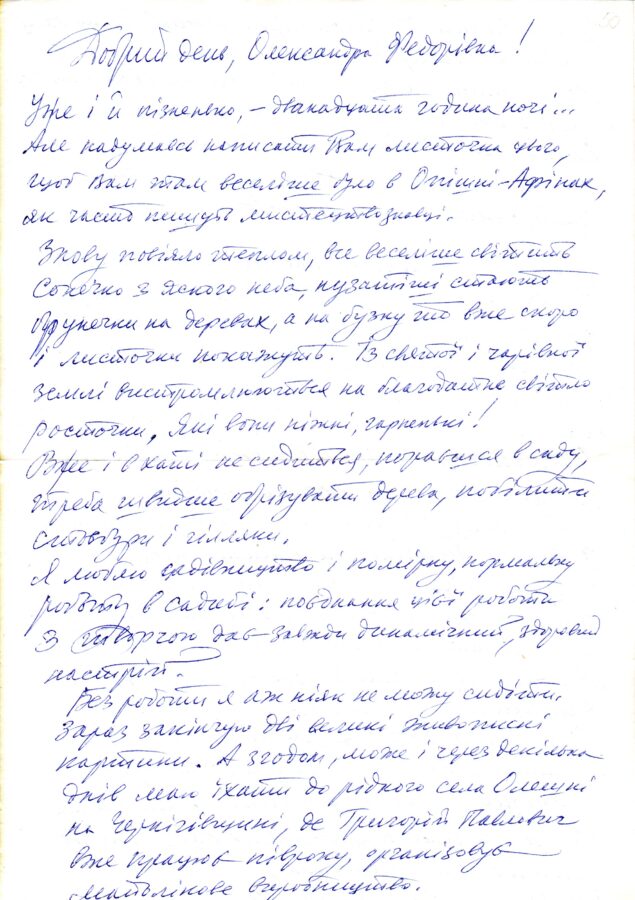 Добрий день, Олександра Федорівна!
Уже і й пізненько, – дванадцята година ночі...
Але надумавсь написати Вам листочка цього,
щоб Вам там веселіше було в Опішні-Афінах,
як часто пишуть мистецтвознавці.
Знову повіяло теплом, все веселіше світить
Сонечко з ясного неба, пузатіші стають
брунечки на деревах, а на бузку то вже скоро
і листочки покажуть. Із святої і чарівної
землі вистромлюються на благодатне світло
росточки. Які вони ніжні, гарненькі!
Вже і в хаті не сидиться, порався в саду,
треба швидше обрізувати дерева, побілити
стовбури і гілляки.
Я люблю садівництво і помірну, нормальну
роботу в садибі: поєднання цієї роботи
з творчою дає завжди динамічний, здоровий
настрій.
Без роботи я аж ніяк не можу сидіти.
Зараз закінчую дві великі живописні
картини. А згодом, може і через декілька
днів маю їхати до рідного села Олешні
на Чернігівщині, де Григорій Павлович
вже працює півроку, організовує
майолікове виробництво.